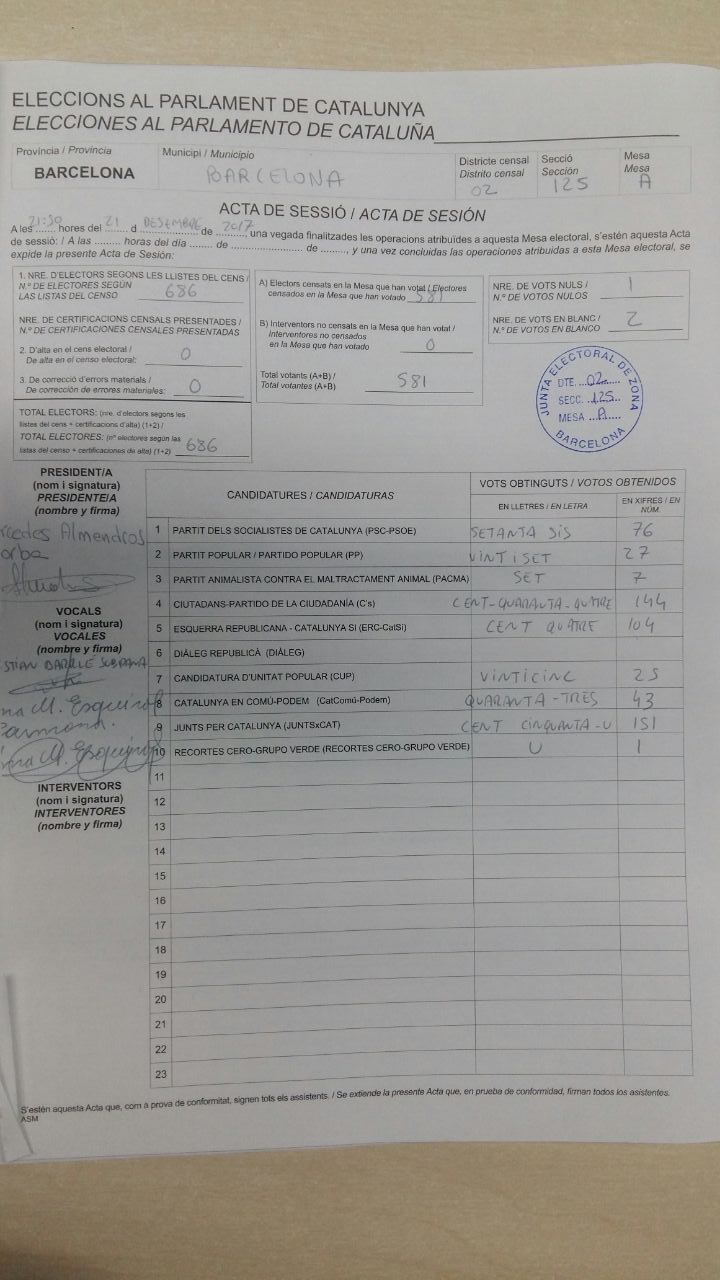 ELECCIONS AL PARLAMENT DE CATALUNYA
ELECCIONES AL PARLAMENTO DE CATALUÑA
Província / Provincia
BARCELONA
Municipi / Municipio
BARCELONA
Districte censal
Distrito censal
02
Secció
Sección
125
Mesa
Mesa
A
ACTA DE SESSIÓ / ACTA DE SESIÓN
A les 21:30 hores del 21 d DESEMBRE de 2017, una vegada finalitzades les operacions atribuïdes a aquesta Mesa electoral, s'estén aquesta Acta
de sessió: / A las ......... horas del día ....... de ..................... de ........, y una vez concluidas las operaciones atribuidas a esta Mesa electoral, se
expide la presente Acta de Sesión:
1. NRE. D'ELECTORS SEGONS LES LLISTES DEL CENS /
N.º DE ELECTORES SEGÚN
LAS LISTAS DEL CENSO 686
NRE. DE CERTIFICACIONS CENSALS PRESENTADES /
N.º DE CERTIFICACIONES CENSALES PRESENTADAS
2. D'alta en el cens electoral /
De alta en el censo electoral: 0
3. De correcció d'errors materials /
De corrección de errores materiales: 0
TOTAL ELECTORS: (nre. d'electors segons les
llistes del cens + certificacions d'alta) (1+2) /
TOTAL ELECTORES: (nº electores según las
listas del censo + certificaciones de alta) (1+2) 686
A) Electors censats en la Mesa que han votat / Electores
censados en la Mesa que han votado 581
B) Interventors no censats en la Mesa que han votat /
Interventores no censados
en la Mesa que han votado 0
Total votants (A+B) /
Total votantes (A+B) 581
NRE. DE VOTS NULS /
N.º DE VOTOS NULOS 1
NRE. DE VOTS EN BLANC /
N.º DE VOTOS EN BLANCO 2
JUNTA ELECTORAL DE ZONA
DTE. 02
SECC. 125
MESA A
BARCELONA
PRESIDENT/A
(nom i signatura)
PRESIDENTE/A
(nombre y firma)
Almendros
VOCALS
(nom i signatura)
VOCALES
(nombre y firma)
M. Esquirol
M. Esquirol
INTERVENTORS
(nom i signatura)
INTERVENTORES
(nombre y firma)
CANDIDATURES / CANDIDATURAS
VOTS OBTINGUTS / VOTOS OBTENIDOS
EN LLETRES / EN LETRA
EN XIFRES / EN NÚM.
1 PARTIT DELS SOCIALISTES DE CATALUNYA (PSC-PSOE) SETANTA SIS 76
2 PARTIT POPULAR / PARTIDO POPULAR (PP) VINT I SET 27
3 PARTIT ANIMALISTA CONTRA EL MALTRACTAMENT ANIMAL (PACMA) SET 7
4 CIUTADANS-PARTIDO DE LA CIUDADANÍA (C's) CENT-QUARANTA-QUATRE 144
5 ESQUERRA REPUBLICANA - CATALUNYA SI (ERC-CatSi) CENT QUATRE 104
6 DIÀLEG REPUBLICÀ (DIÀLEG)
7 CANDIDATURA D'UNITAT POPULAR (CUP) VINTICINC 25
8 CATALUNYA EN COMÚ-PODEM (CatComú-Podem) QUARANTA-TRES 43
9 JUNTS PER CATALUNYA (JUNTSxCAT) CENT CINQUANTA-U 151
10 RECORTES CERO-GRUPO VERDE (RECORTES CERO-GRUPO VERDE) U 1
11
12
13
14
15
16
17
18
19
20
21
22
23
S'estén aquesta Acta que, com a prova de conformitat, signen tots els assistents. / Se extiende la presente Acta que, en prueba de conformidad, firman todos los asistentes.
ASM